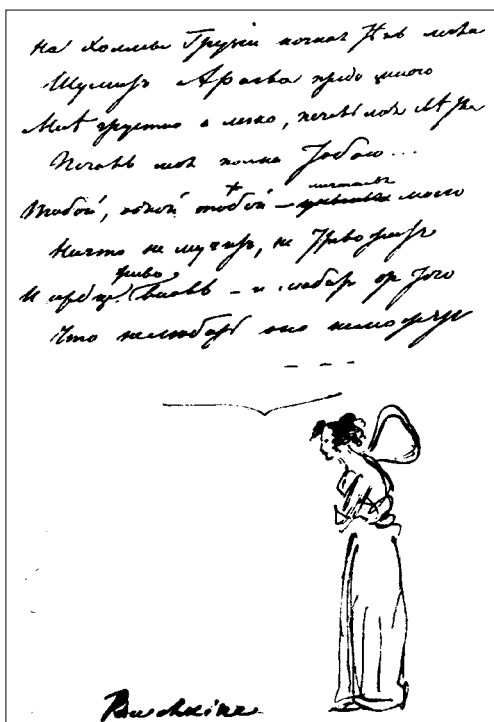 На холмы Грузіи ночная тѣнь легла
Шумитъ Арагва предо мною
Мнѣ грустно и легко, печаль моя свѣтла
Печаль моя полна тобою...
Тобой, одной тобой — унынья моего
Ничто не мучитъ, не тревожитъ
И сердце вновь – и любитъ отъ того
Что не любить оно не можетъ
Pouchkine